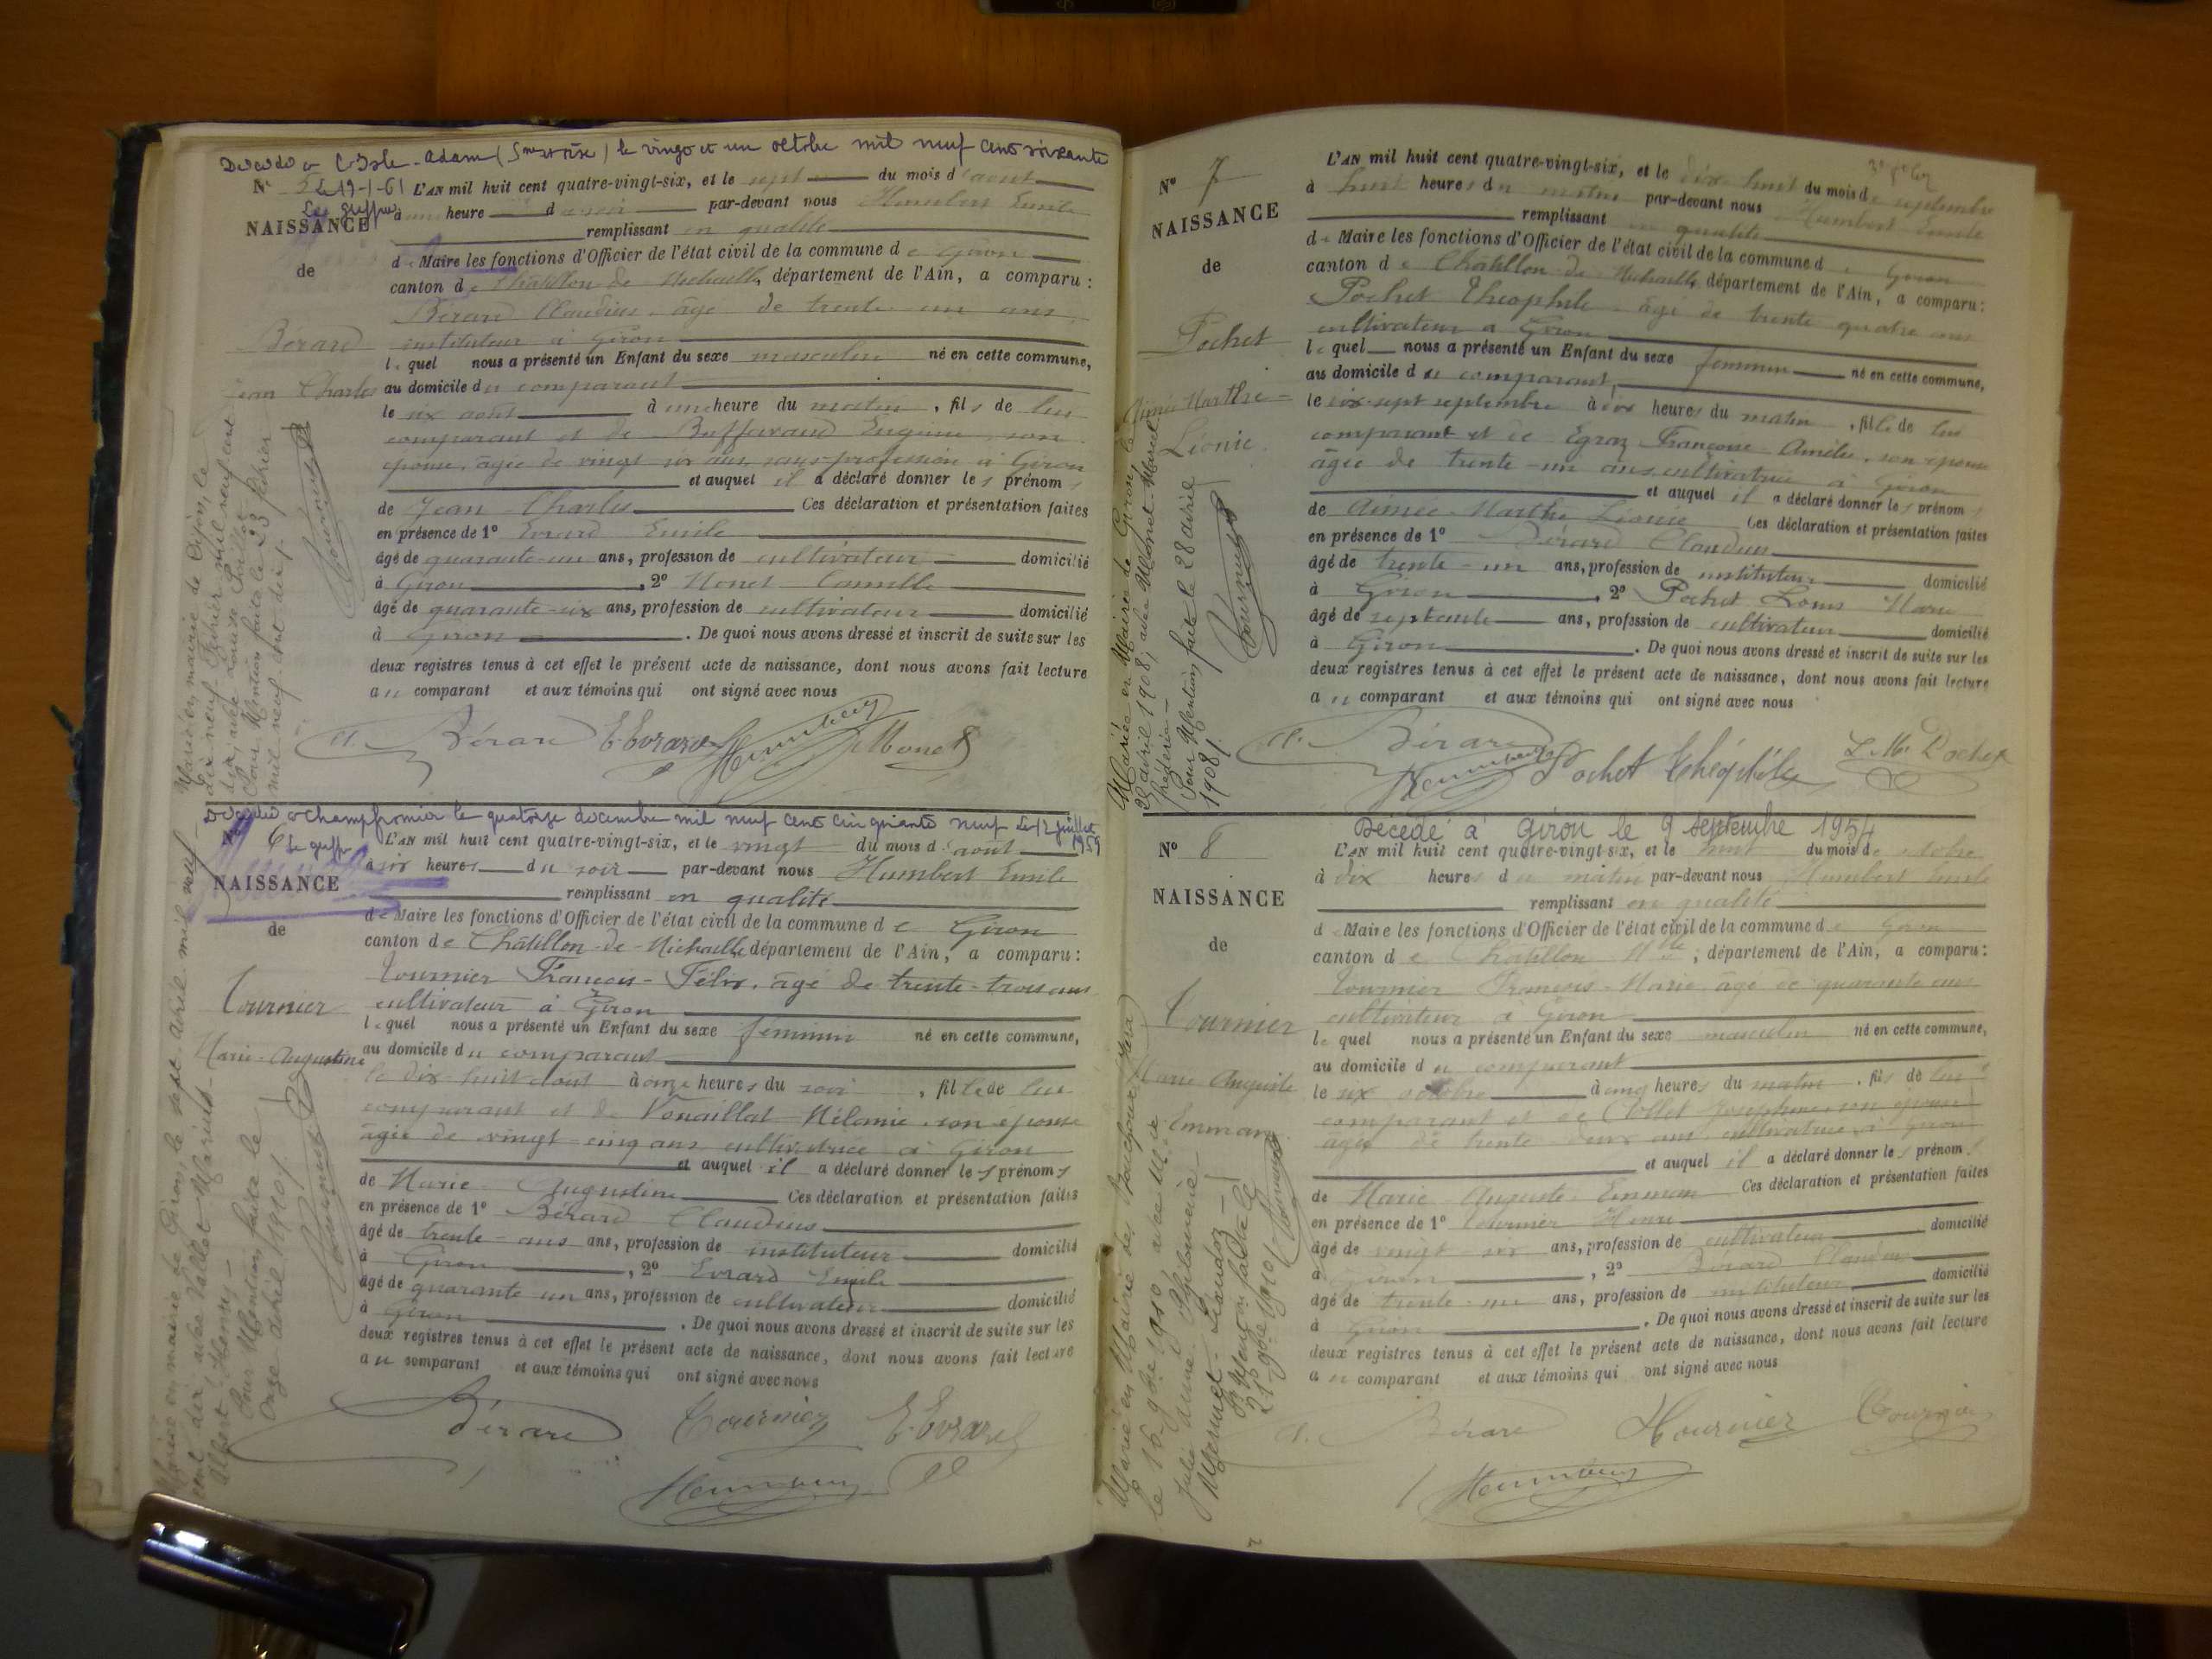 Décédé à L'Isle-Adam (S et Oise) le vingt et un octobre mil neuf cent soixante
N° 5 Le 19-1-61 L'AN mil huit cent quatre-vingt-six, et le sept du mois d'août
Le greffier à une heure d soir par-devant nous Humbert Emile
NAISSANCE remplissant en qualité
de Maire les fonctions d'Officier de l'état civil de la commune de Giron
de
canton de Châtillon de Michaille, département de l'Ain, a comparu :
Bérard Claudius âgé de trente un ans
Bérard instituteur à Giron
lequel nous a présenté un Enfant du sexe masculin né en cette commune,
Jean Charles au domicile du comparant
le six août à une heure du matin, fils de lui
comparant et de Buffavand Eugénie, son
épouse, âgée de vingt six ans, sans profession à Giron
et auquel il a déclaré donner les prénoms
de Jean-Charles Ces déclaration et présentation faites
en présence de 1° Evrard Emile
âgé de quarante-un ans, profession de cultivateur domicilié
à Giron, 2° Monet Camille
âgé de quarante-six ans, profession de cultivateur domicilié
à Giron. De quoi nous avons dressé et inscrit de suite sur les
deux registres tenus à cet effet le présent acte de naissance, dont nous avons fait lecture
au comparant et aux témoins qui ont signé avec nous
Marié en mairie de Dijon, le
dix neuf Février mil neuf cent
dix, avec Louise
Pour Mention faite le 23 Février
mil neuf cent dix.
Tournier
Cl. Bérard E. Evrard Humbert Monet
Décédée à Champfromier le quatorze décembre mil neuf cent cinquante neuf Le 12 juillet 1959
N° 6 Le greffier L'AN mil huit cent quatre-vingt-six, et le vingt du mois d'août
à six heures du soir par-devant nous Humbert Emile
NAISSANCE remplissant en qualité
de Maire les fonctions d'Officier de l'état civil de la commune de Giron
de
canton de Châtillon-de-Michaille, département de l'Ain, a comparu :
Tournier François-Félix, âgé de trente-trois ans
Tournier cultivateur à Giron
lequel nous a présenté un Enfant du sexe féminin né en cette commune,
Marie-Augustine au domicile du comparant
le dix-huit août à onze heures du soir, fille de lui
comparant et de Vonaillat Mélanie, son épouse
âgée de vingt-cinq ans cultivatrice à Giron
et auquel il a déclaré donner les prénoms
de Marie Augustine Ces déclaration et présentation faites
en présence de 1° Bérard Claudius
âgé de trente-ans ans, profession de instituteur domicilié
à Giron, 2° Evrard Emile
âgé de quarante un ans, profession de cultivateur domicilié
à Giron. De quoi nous avons dressé et inscrit de suite sur les
deux registres tenus à cet effet le présent acte de naissance, dont nous avons fait lecture
au comparant et aux témoins qui ont signé avec nous
Mariée en mairie de Giron le sept avril mil neuf
cent dix avec Vallet Marius
Albert Henry
Pour Mention faite le
onze avril 1910
Tournier
Bérard Tournier E. Evrard
Humbert
N° 7 L'AN mil huit cent quatre-vingt-six, et le dix-huit du mois de septembre
à huit heures du matin par-devant nous Humbert Emile
NAISSANCE remplissant en qualité
de Maire les fonctions d'Officier de l'état civil de la commune de Giron
de
canton de Châtillon-de-Michaille, département de l'Ain, a comparu :
Pochet Théophile âgé de trente quatre ans
Pochet cultivateur à Giron
lequel nous a présenté un Enfant du sexe féminin né en cette commune,
au domicile du comparant,
Aimée Marthe Léonie
le dix-sept septembre à dix heures du matin, fille de lui
comparant et de Egraz Françoise Amélie, son épouse
âgée de trente-un ans cultivatrice à Giron
et auquel il a déclaré donner les prénoms
de Aimée Marthe Léonie Ces déclaration et présentation faites
en présence de 1° Bérard Claudius
âgé de trente-un ans, profession de instituteur domicilié
à Giron, 2° Pochet Louis Marie
âgé de septante ans, profession de cultivateur domicilié
à Giron. De quoi nous avons dressé et inscrit de suite sur les
deux registres tenus à cet effet le présent acte de naissance, dont nous avons fait lecture
au comparant et aux témoins qui ont signé avec nous
Mariée en Mairie de Giron, le
avril 1908, avec Monet-Marcel
Frédéric
Pour Mention faite le 28 avril
1908
Tournier
Cl. Bérard Humbert Pochet Théophile L. M. Pochet
Décédé à Giron le 9 septembre 1954
N° 8 L'AN mil huit cent quatre-vingt-six, et le huit du mois de octobre
à dix heures du matin par-devant nous Humbert Emile
NAISSANCE remplissant en qualité
de Maire les fonctions d'Officier de l'état civil de la commune de Giron
de
canton de Châtillon Mlle, département de l'Ain, a comparu :
Tournier François-Marie âgé de quarante ans
Tournier cultivateur à Giron
lequel nous a présenté un Enfant du sexe masculin né en cette commune,
au domicile du comparant
Marie Auguste Emman.
le six octobre à cinq heures du matin, fils de lui
comparant et de Collet Joséphine, son épouse
âgée de trente-deux ans, cultivatrice à Giron
et auquel il a déclaré donner les prénoms
de Marie Auguste Emman Ces déclaration et présentation faites
en présence de 1° Tournier Henri
âgé de vingt-six ans, profession de cultivateur domicilié
à Giron, 2° Bérard Claudius
âgé de trente-un ans, profession de instituteur domicilié
à Giron. De quoi nous avons dressé et inscrit de suite sur les
deux registres tenus à cet effet le présent acte de naissance, dont nous avons fait lecture
au comparant et aux témoins qui ont signé avec nous
Marié en Mairie des Bouchoux (Jura)
le 16 9bre 1910, avec Marie
Julie Aimée Philomène
Mermet-Landoz
Pr Mention faite le
21 9bre 1910
Tournier
Cl. Bérard H. Tournier Tournier
Humbert